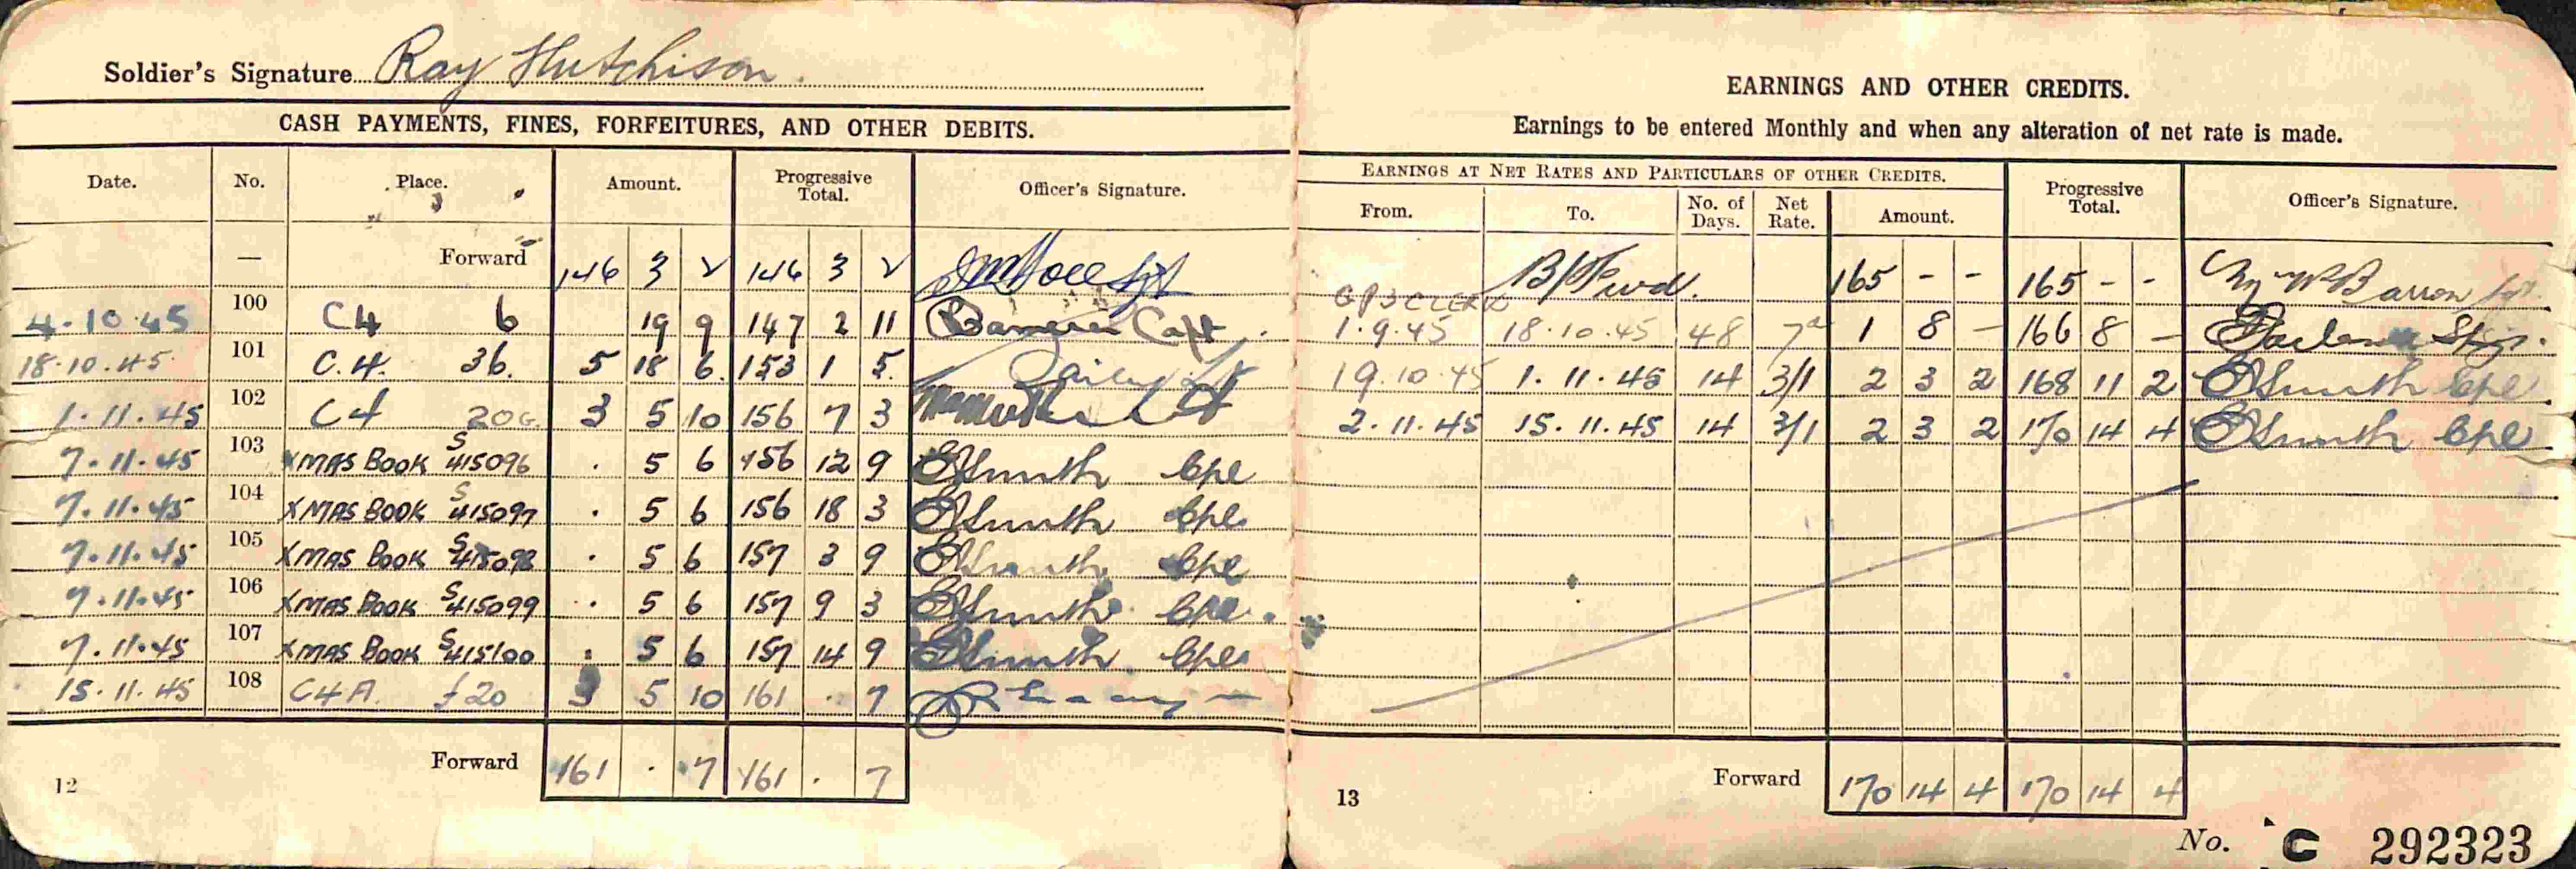 Soldier's Signature Ray Hutchison.
CASH PAYMENTS, FINES, FORFEITURES, AND OTHER DEBITS.
Date. No. Place. Amount. Progressive Total. Officer's Signature.
— Forward 146 3 2 146 3 2
4-10-45 100 C4 6 19 9 147 2 11 Capt.
18.10.45 101 C.4. 36. 5 18 6 153 1 5.
1.11.45 102 C4 20G. 3 5 10 156 7 3
7.11.45 103 XMAS BOOK S 415096 . 5 6 156 12 9 Smith Cpl
7.11.45 104 XMAS BOOK S 415097 . 5 6 156 18 3 Smith Cpl
7.11.45 105 XMAS BOOK S 415098 . 5 6 157 3 9 Smith Cpl
7.11.45 106 XMAS BOOK S 415099 . 5 6 157 9 3 Smith Cpl.
7.11.45 107 XMAS BOOK S 415100 . 5 6 157 14 9 Smith Cpl
15.11.45 108 C4A. £20 3 5 10 161 . 7
Forward 161 . 7 161 . 7
12
EARNINGS AND OTHER CREDITS.
Earnings to be entered Monthly and when any alteration of net rate is made.
EARNINGS AT NET RATES AND PARTICULARS OF OTHER CREDITS. Progressive Total. Officer's Signature.
From. To. No. of Days. Net Rate. Amount.
B/Fwd. 165 - - 165 - - Barron
CLERK
1.9.45 18.10.45 48 7d 1 8 - 166 8 -
19.10.45 1.11.45 14 3/1 2 3 2 168 11 2 Smith Cpl
2.11.45 15.11.45 14 3/1 2 3 2 170 14 4 Smith Cpl
Forward 170 14 4 170 14 4
13
No. C 292323